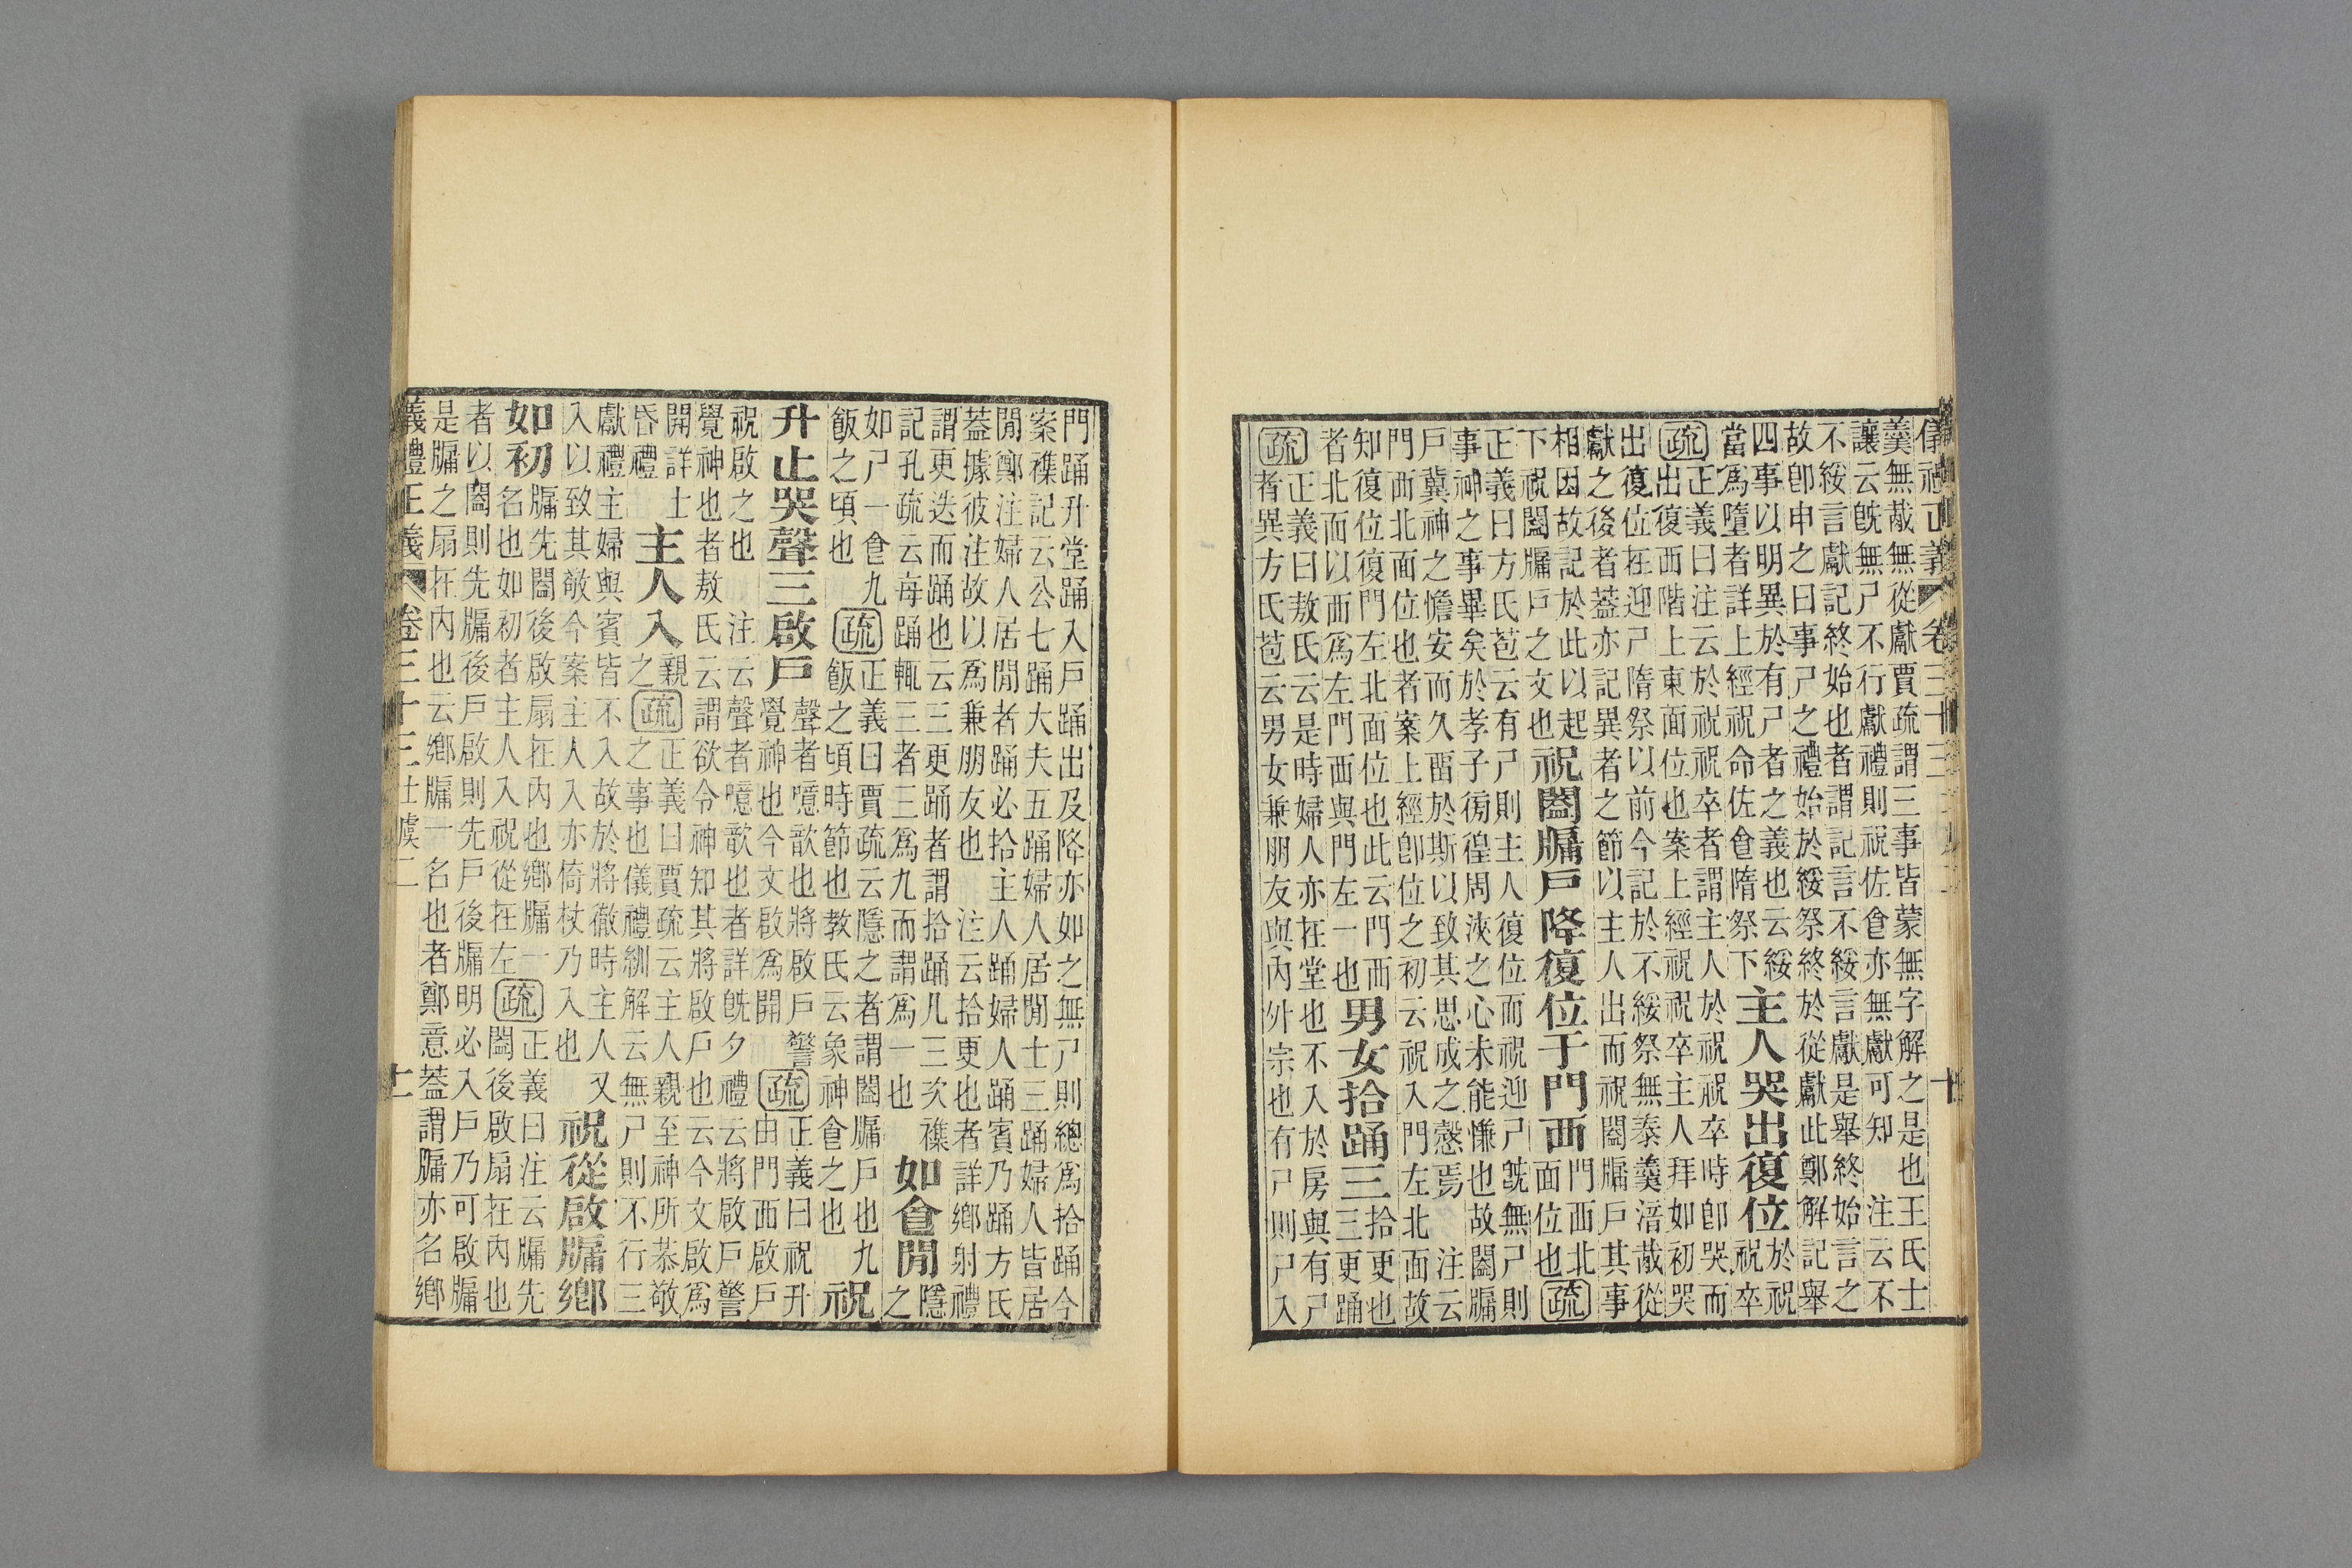 儀禮正義 卷三十三 士虞二 十
羹無胾無從獻賈疏謂三事皆蒙無字解之是也王氏士
讓云旣無尸不行獻禮則祝佐食亦無獻可知　注云不
不綏言獻記終始也者謂記言不綏言獻是舉終始言之
故卽申之曰事尸之禮始於綏祭終於從獻此鄭解記舉
四事以明異於有尸者之義也云綏
當爲墮者詳上經祝命佐食隋祭下
主人哭出復位
於祝
祝卒
疏
正義曰注云於祝祝卒者謂主人於祝祝卒時卽哭而
出復西階上東面位也案上經祝祝卒主人拜如初哭
出復位在迎尸隋祭以前今記於不綏祭無泰羹湆胾從
獻之後者蓋亦記異者之節以主人出而祝闔牖戶其事
相因故記於此以起
下祝闔牖戶之文也
祝闔牖戶降復位于門西
門西北
面位也
疏
正義曰方氏苞云有尸則主人復位而祝迎尸旣無尸則
事神之事畢矣於孝子徬徨周浹之心未能慊也故闔牖
戶冀神之憺安而久畱於斯以致其思成之慤焉　注云
門西北面位也者案上經卽位之初云祝入門左北面故
知復位復門左北面位也此云門西
者北而以西爲左門西與門左一也
男女拾踊三
拾更也
三更踊
疏
正義曰敖氏云是時婦人亦在堂也不入於房與有尸
者異方氏苞云男女兼朋友與內外宗也有尸則尸入
門踊升堂踊入戶踊出及降亦如之無尸則總爲拾踊今
案襍記云公七踊大夫五踊婦人居閒士三踊婦人皆居
閒鄭注婦人居閒者踊必拾主人踊婦人踊賓乃踊方氏
蓋據彼注故以爲兼朋友也　注云拾更也者詳鄉射禮
謂更迭而踊也云三更踊者謂拾踊凡三次襍
記孔疏云每踊輒三者三爲九而謂爲一也
如食閒
隱之
如尸一食九
飯之頃也
疏
正義曰賈疏云隱之者謂闔牖戶也九
飯之頃時節也敎氏云象神食之也
祝
升止哭聲三啟戶
聲者噫歆也將啟戶警
覺神也今文啟爲開
疏
正義曰祝升
由門西啟戶
祝啟之也　注云聲者噫歆也者詳旣夕禮云將啟戶警
覺神也者敖氏云謂欲令神知其將啟戶也云今文啟爲
開詳士
昏禮
主人入
親
之
疏
正義曰賈疏云主人親至神所恭敬
之事也儀禮紃解云無尸則不行三
獻禮主婦與賓皆不入故於將徹時主人又
入以致其敬今案主人入亦倚杖乃入也
祝從啟牖鄉
如初
牖先闔後啟扇在內也鄉牖一
名也如初者主人入祝從在左
疏
正義曰注云牖先
闔後啟扇在內也
者以闔則先牖後戶啟則先戶後牖明必入戶乃可啟牖
是牖之扇在內也云鄉牖一名也者鄭意蓋謂牖亦名鄉
義禮正義 卷三十三 士虞二 十一